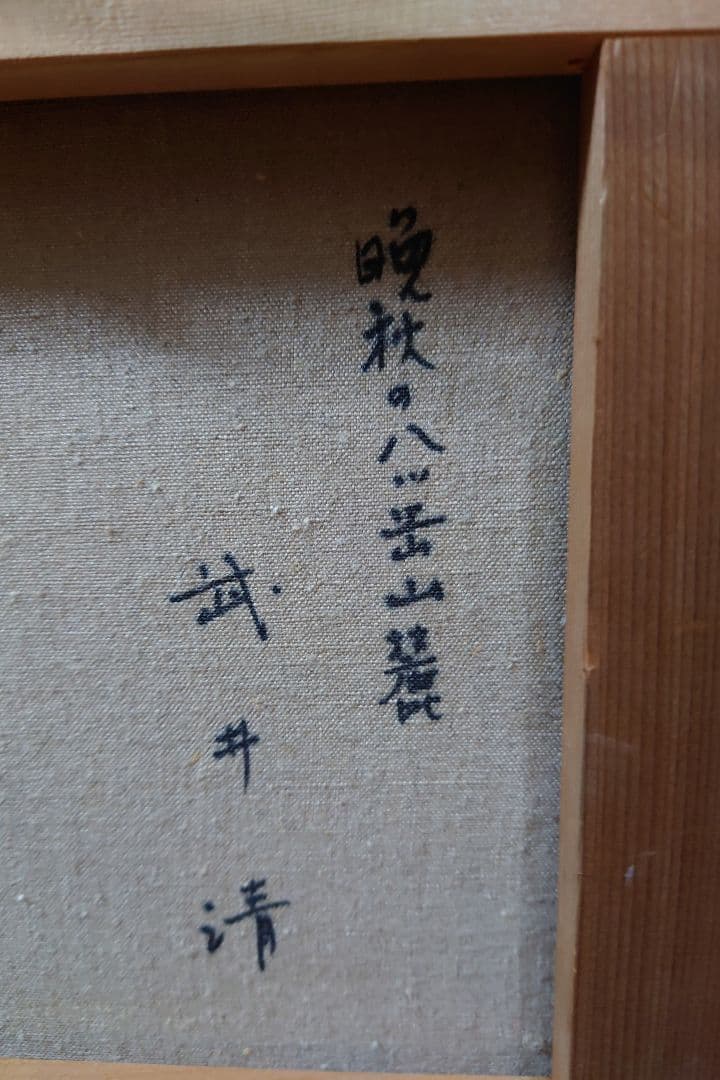 晩秋の八ッ岳山麓
武井清